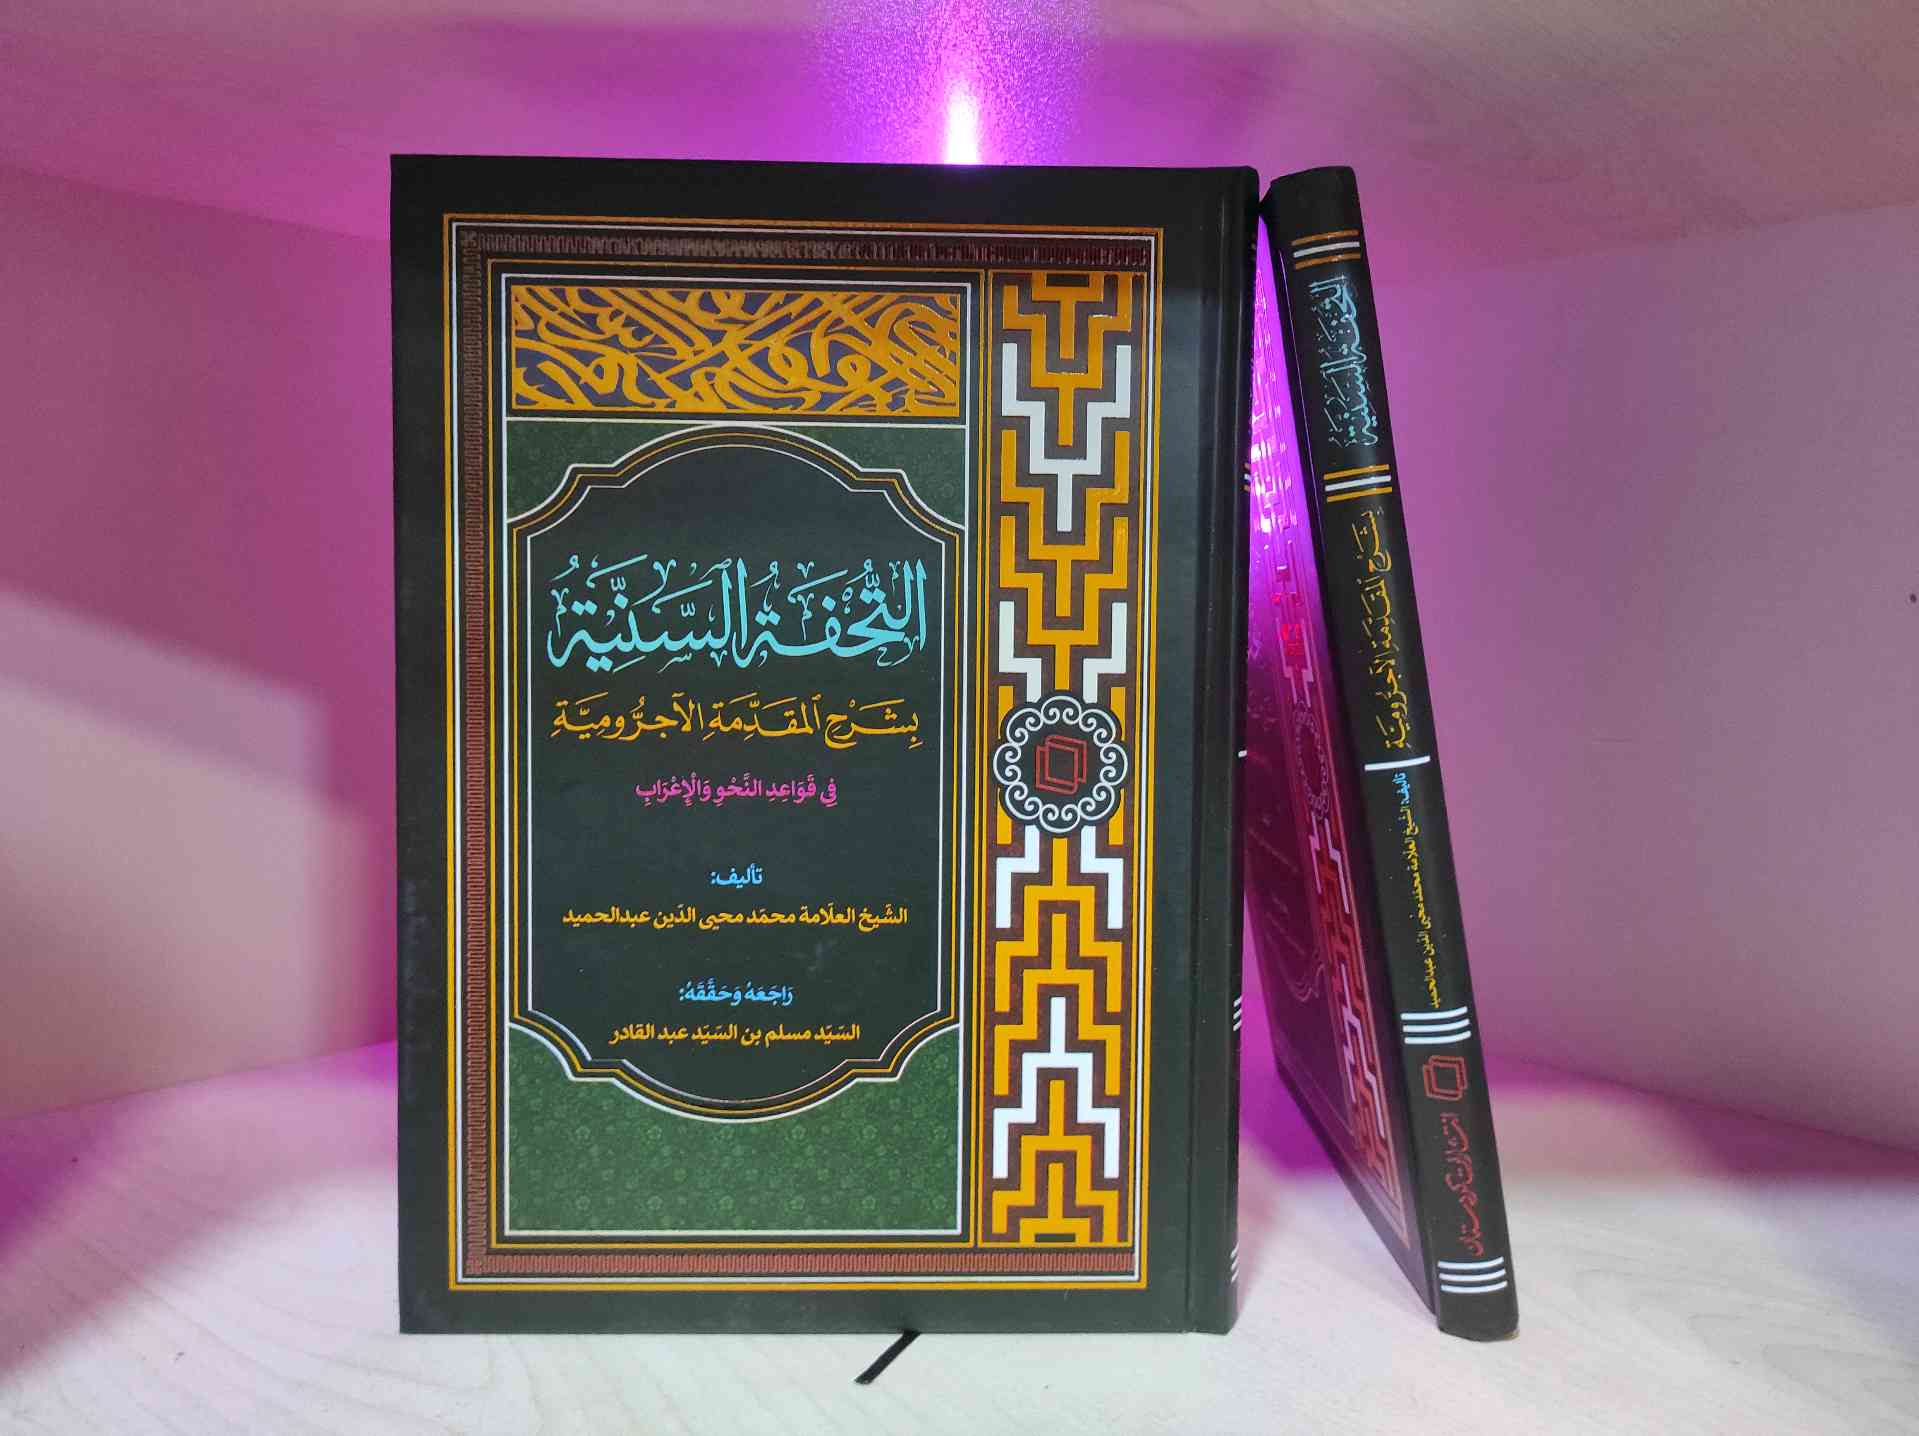 التُّحْفَةُ السَّنِيَّةُ
بِشَرْحِ ٱلْمُقَدِّمَةِ الآجُرُّومِيَّةِ
فِي قَوَاعِدِ النَّحْوِ وَالْإِعْرَابِ
تأليف:
الشّيخ العلّامة محمّد محيى الدّين عبدالحميد
رَاجَعَهُ وَحَقَّقَهُ:
السّيّد مسلم بن السّيّد عبد القادر
التحفة السنية
بِشَرْحِ ٱلْمُقَدِّمَةِ الآجُرُّومِيَّةِ
تأليف: الشّيخ العلّامة محمّد محيى الدّين عبدالحميد
انتشارات كردستان